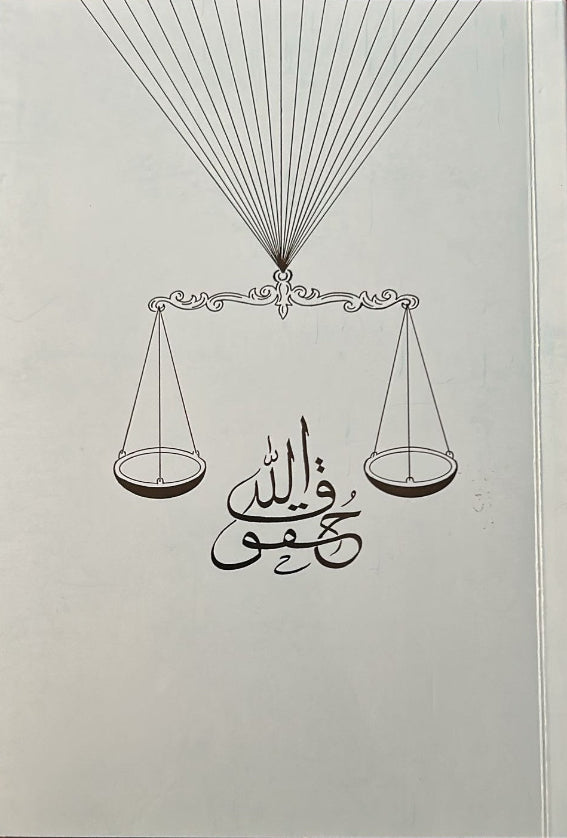 حُقوق الله